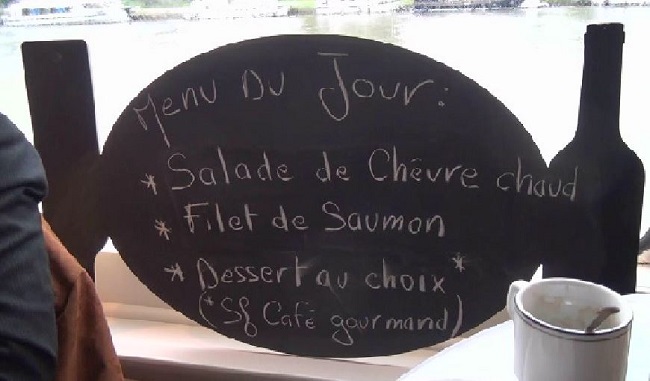 Menu Du Jour:
* Salade de Chèvre chaud
* Filet de Saumon
* Dessert au choix*
(*Sf Café gourmand)